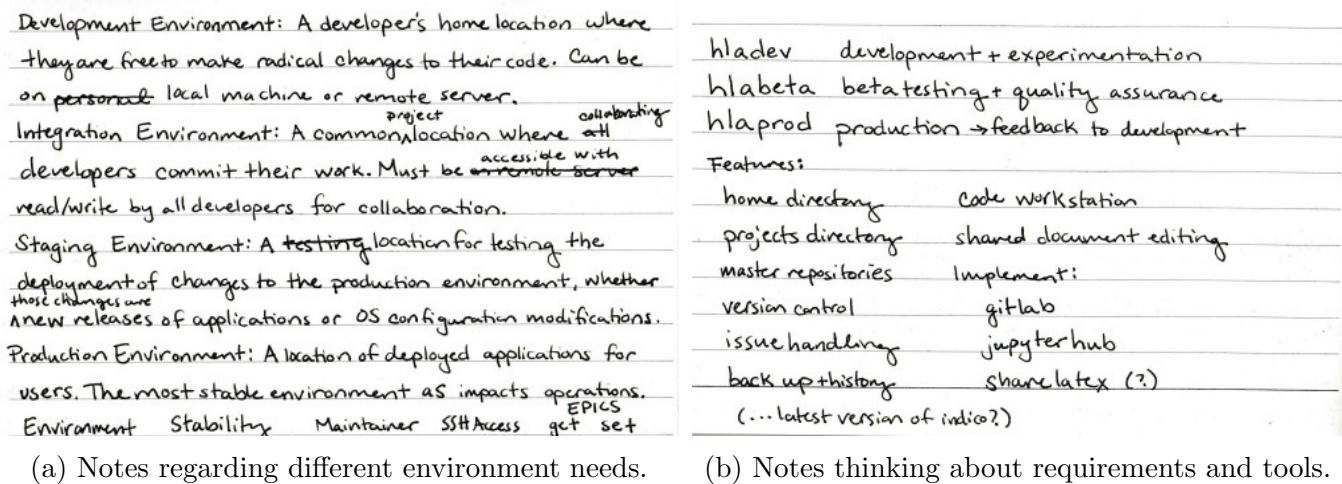 Development Environment: A developer's home location where
they are free to make radical changes to their code. Can be
on personal local machine or remote server.
project collaborating
Integration Environment: A common location where all
accessible with
developers commit their work. Must be on remote server
read/write by all developers for collaboration.
Staging Environment: A testing location for testing the
deployment of changes to the production environment, whether
those changes are
^new releases of applications or OS configuration modifications.
Production Environment: A location of deployed applications for
users. The most stable environment as impacts operations.
EPICS
Environment Stability Maintainer SSH Access get set
(a) Notes regarding different environment needs.
hladev development + experimentation
hlabeta beta testing + quality assurance
hlaprod production → feedback to development
Features:
home directory code workstation
projects directory shared document editing
master repositories Implement:
version control gitlab
issue handling jupyterhub
back up + history sharelatex (?)
(... latest version of indico?)
(b) Notes thinking about requirements and tools.